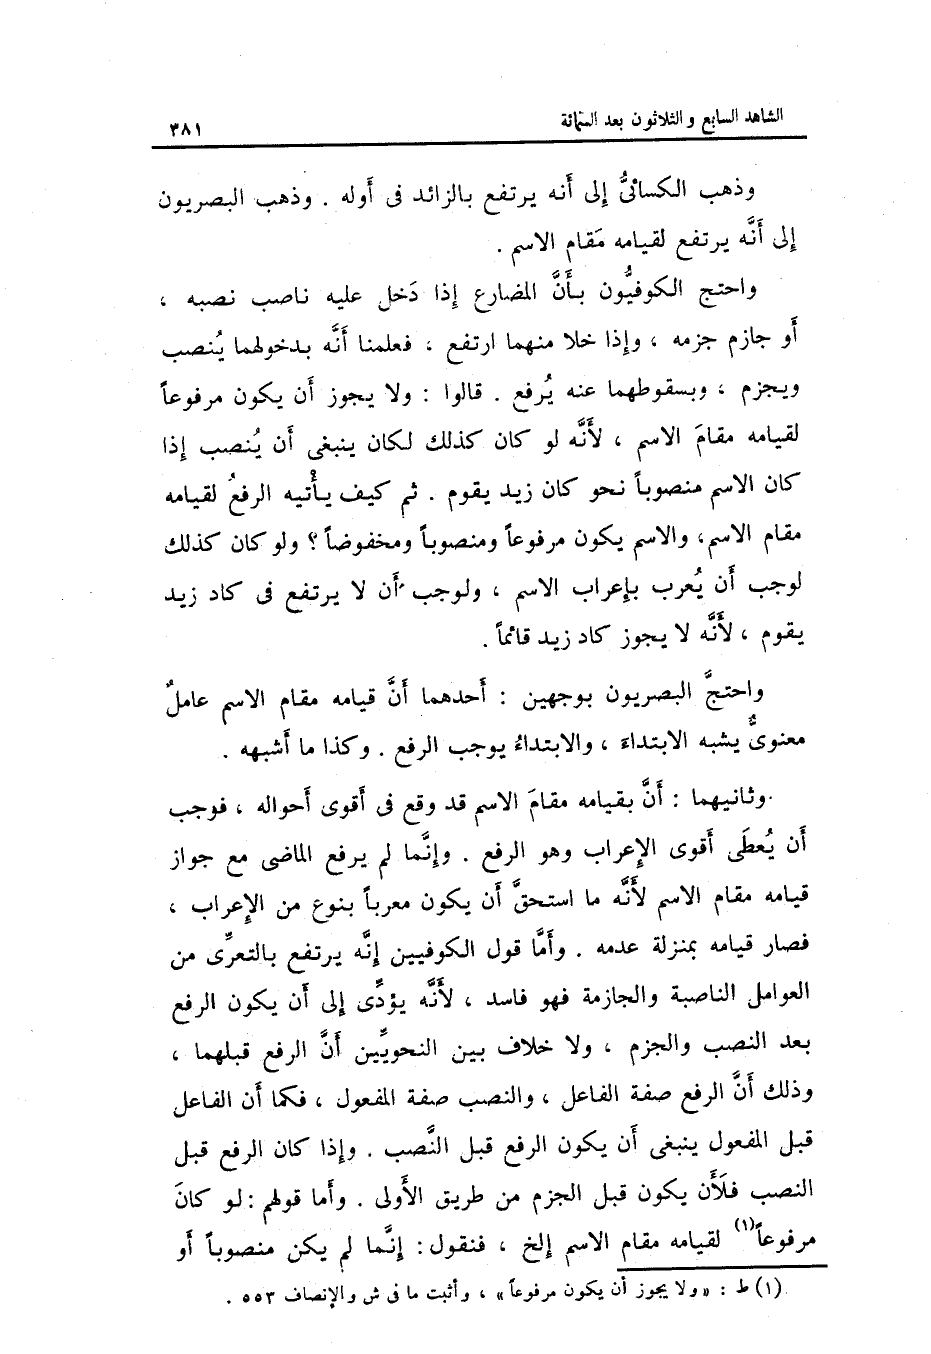 الشاهد السابع والثلاثون بعد الستمائة ٣٨١
وذهب الكسائيُّ إلى أَنه يرتفع بالزائد فى أَوله . وذهب البصريون
إلى أَنَّه يرتفع لقيامه مَقام الاسم .
واحتج الكوفيُّون بأَنَّ المضارع إذا دَخل عليه ناصب نصبه ،
أَو جازم جزمه ، وإذا خلا منهما ارتفع ، فعلمنا أَنَّه بدخولهما يُنصب
ويجزم ، وبسقوطهما عنه يُرفع . قالوا : ولا يجوز أَن يكون مرفوعاً
لقيامه مقامَ الاسم ، لأَنَّه لو كان كذلك لكان ينبغى أَن يُنصب إذا
كان الاسم منصوباً نحو كان زيد يقوم . ثم كيف يأْتيه الرفعُ لقيامه
مقام الاسم، والاسم يكون مرفوعاً ومنصوباً ومخفوضاً ؟ ولو كان كذلك
لوجب أَن يُعرب بإعراب الاسم ، ولوجب أَن لا يرتفع فى كاد زيد
يقوم ، لأَنَّه لا يجوز كاد زيد قائماً .
واحتجَّ البصريون بوجهين : أَحدهما أَنَّ قيامه مقام الاسم عاملٌ
معنوىٌّ يشبه الابتداءَ ، والابتداءُ يوجب الرفع . وكذا ما أَشبهه .
وثانيهما : أَنَّ بقيامه مقامَ الاسم قد وقع فى أَقوى أَحواله ، فوجب
أَن يُعطَى أَقوى الإعراب وهو الرفع . وإنَّما لم يرفع الماضى مع جواز
قيامه مقام الاسم لأَنَّه ما استحقَّ أَن يكون معرباً بنوع من الإعراب ،
فصار قيامه بمنزلة عدمه . وأَمَّا قول الكوفيين إنَّه يرتفع بالتعرِّى من
العوامل الناصبة والجازمة فهو فاسد ، لأَنَّه يؤدِّى إلى أَن يكون الرفع
بعد النصب والجزم ، ولا خلاف بين النحويِّين أَنَّ الرفع قبلهما ،
وذلك أَنَّ الرفع صفة الفاعل ، والنصب صفة المفعول ، فكما أَن الفاعل
قبل المفعول ينبغى أَن يكون الرفع قبل النَّصب . وإذا كان الرفع قبل
النصب فلَأَن يكون قبل الجزم من طريق الأَولى . وأَما قولهم : لو كانَ
مرفوعاً(١) لقيامه مقام الاسم إلخ ، فنقول : إنَّما لم يكن منصوباً أَو
(١) ط : «ولا يجوز أن يكون مرفوعاً» ، وأثبت ما فى ش والإنصاف ٥٥٣ .